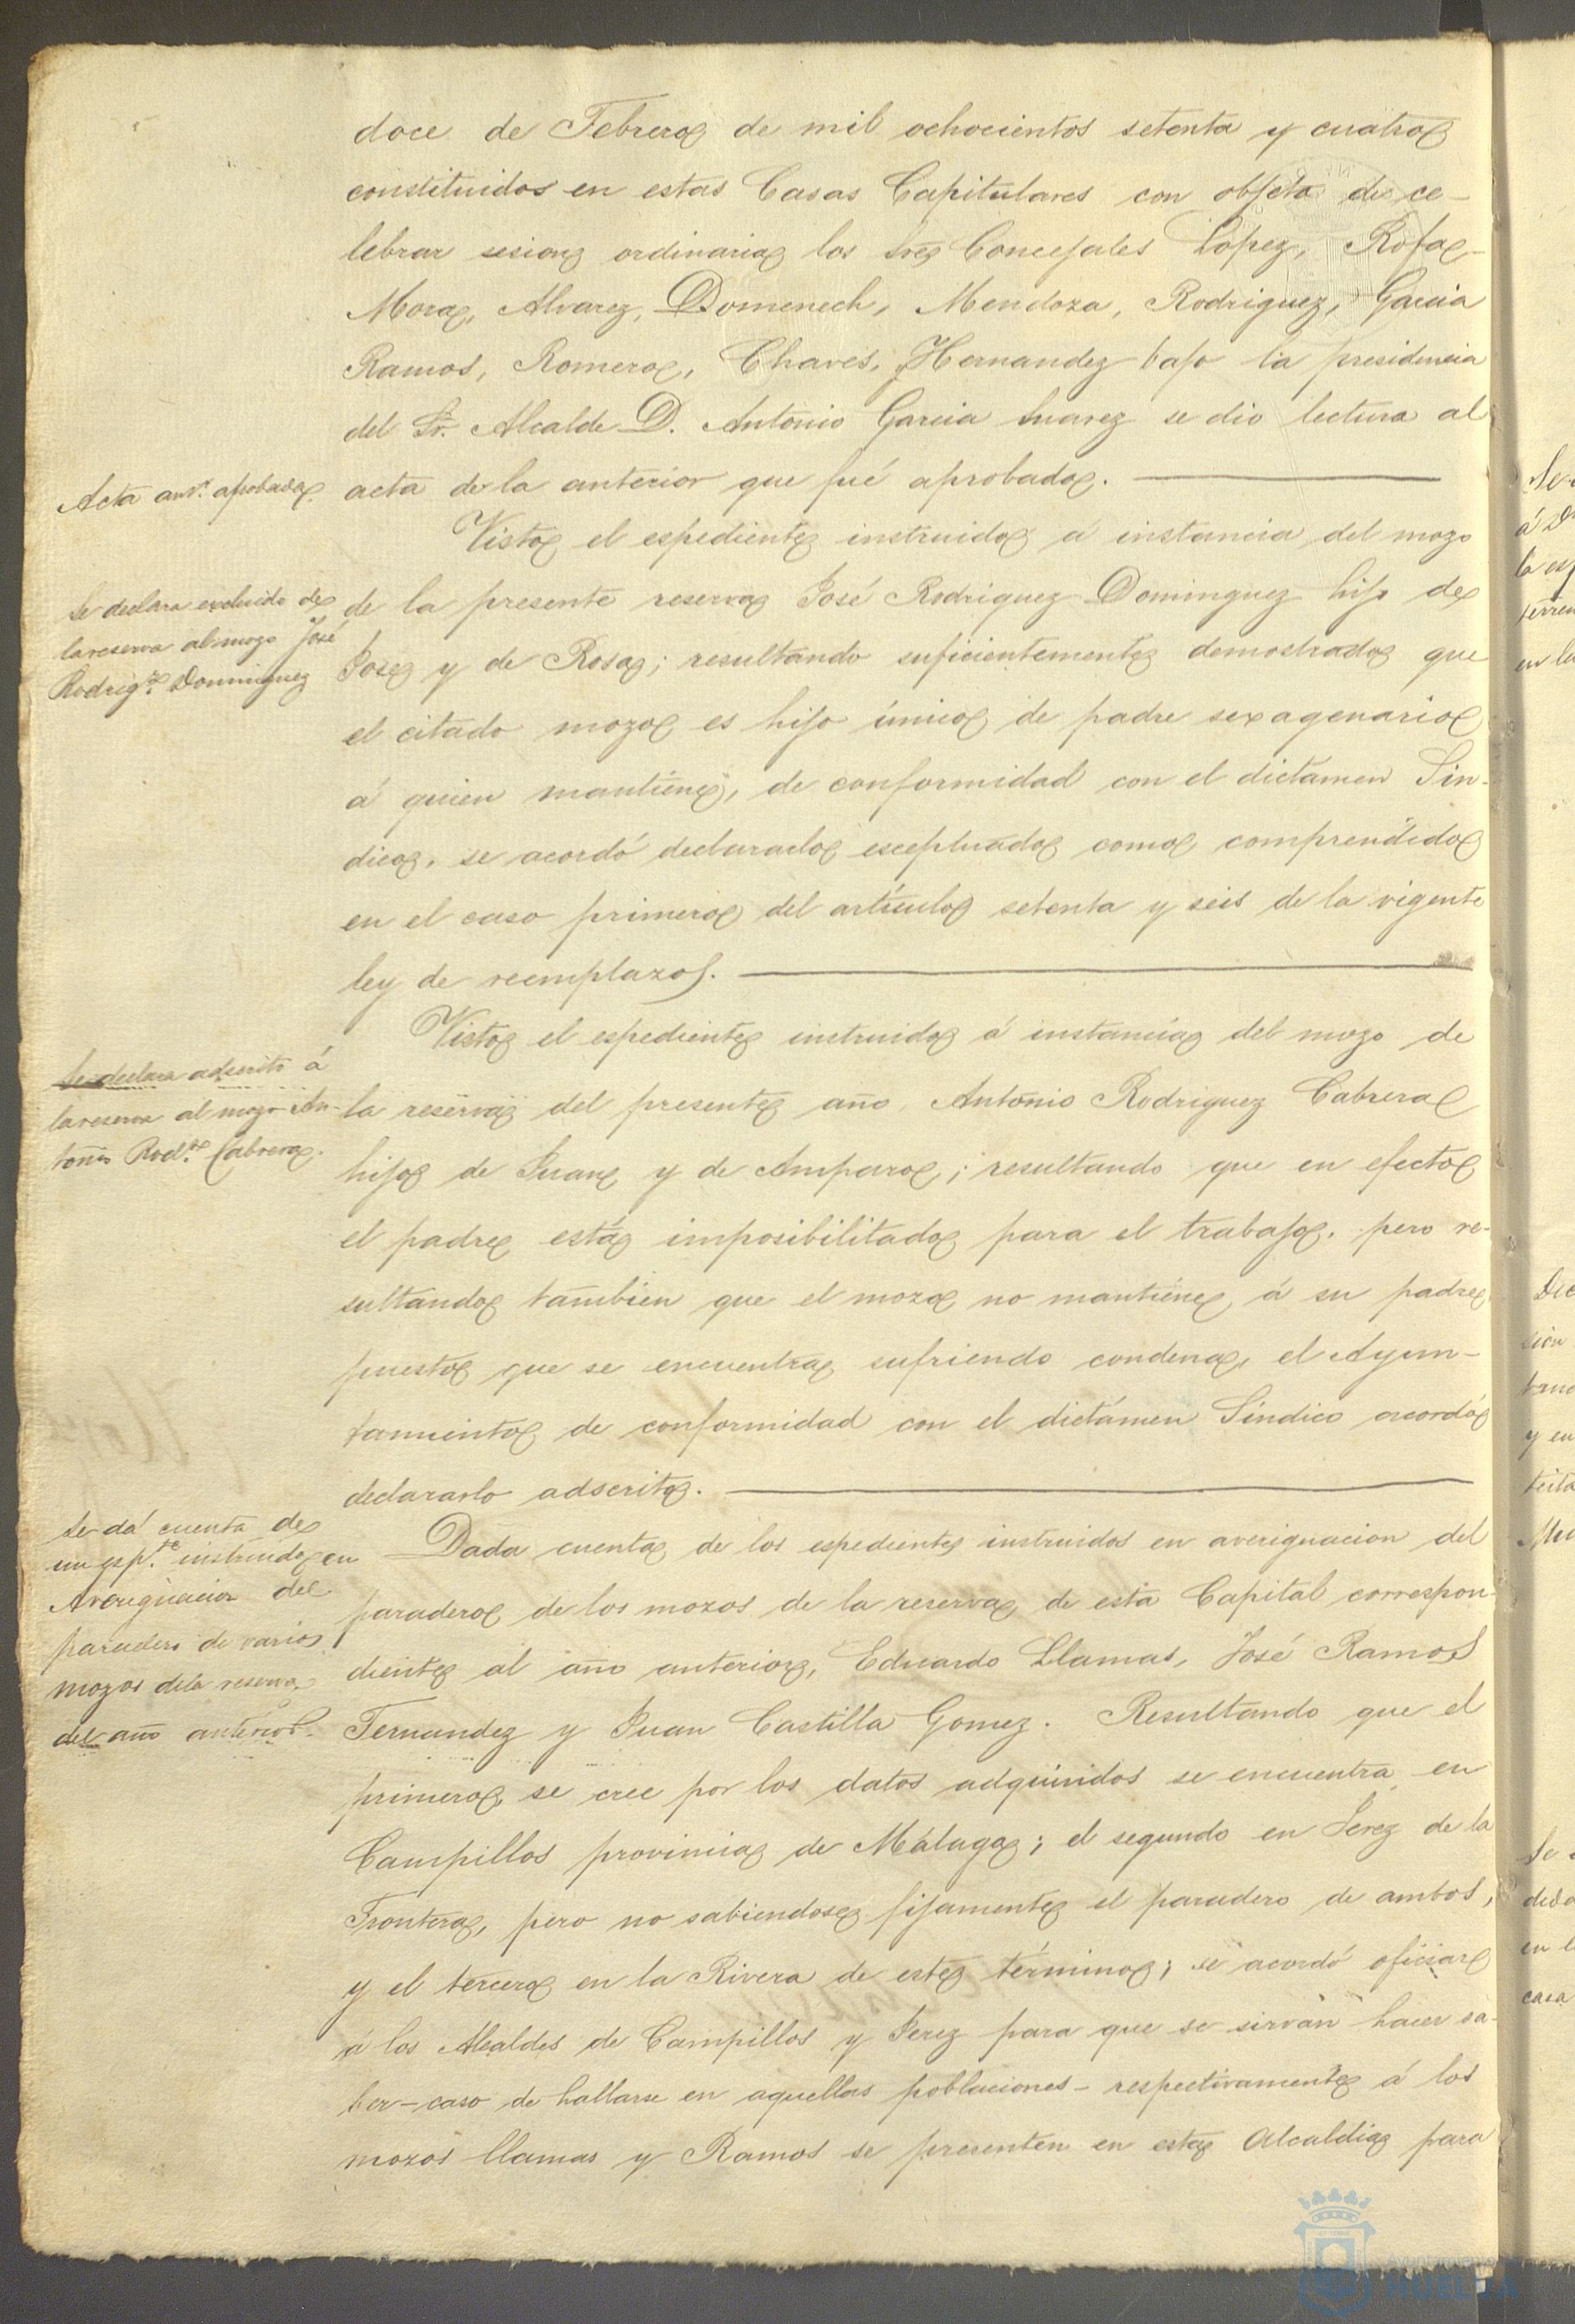 doce de Febrero de mil ochocientos setenta y cuatro
constituidos en estas Casas Capitulares con objeto de ce-
lebrar sesion ordinaria los Sres Concejales Lopez, Rofa-
Mora, Alvarez, Domenech, Mendoza, Rodriguez, Garcia
Ramos, Romero, Chaves, Hernandez bajo la presidencia
del Sr. Alcalde D. Antonio Garcia Suarez se dio lectura al
Acta ant.r aprobada
acta de la anterior que fué aprobada.
Visto el espediente instruido á instancia del mozo
Se declara excluido de
la reserva al mozo José
Rodrig.z Dominguez
de la presente reserva José Rodriguez Dominguez hijo de
Jose y de Rosa; resultando suficientemente demostrado que
el citado mozo es hijo único de padre sexagenario
á quien mantiene, de conformidad con el dictamen Sin-
dico, se acordó declararlo esceptuado como comprendido
en el caso primero del artículo setenta y seis de la vigente
ley de reemplazos.
Visto el espediente instruido á instancia del mozo de
Se declara adscrito á
la reserva al mozo An-
tonio Rod.z Cabrera.
la reserva del presente año, Antonio Rodriguez Cabrera
hijo de Juan y de Amparo; resultando que en efecto
el padre está imposibilitado para el trabajo, pero re-
sultando tambien que el mozo no mantiene á su padre
puesto que se encuentra sufriendo condena, el Ayun-
tamiento de conformidad con el dictámen Síndico acordó
declararlo adscrito.
Se dá cuenta de
un esp.te instruido en
Averiguacion del
paradero de varios
mozos de la reserva
del año anterior.
Dada cuenta de los espedientes instruidos en averiguacion del
paradero de los mozos de la reserva de esta Capital correspon-
diente al año anterior, Eduardo Llamas, José Ramos
Fernandez y Juan Castilla Gomez. Resultando que el
primero se cree por los datos adquiridos se encuentra en
Campillos provincia de Málaga; el segundo en Jerez de la
Frontera, pero no sabiendose fijamente el paradero de ambos,
y el tercero en la Rivera de este término; se acordó oficiar
á los Alcaldes de Campillos y Jerez para que se sirvan hacer sa-
ber-caso de hallarse en aquellas poblaciones-respectivamente á los
mozos Llamas y Ramos se presenten en esta Alcaldia para
HUELVA